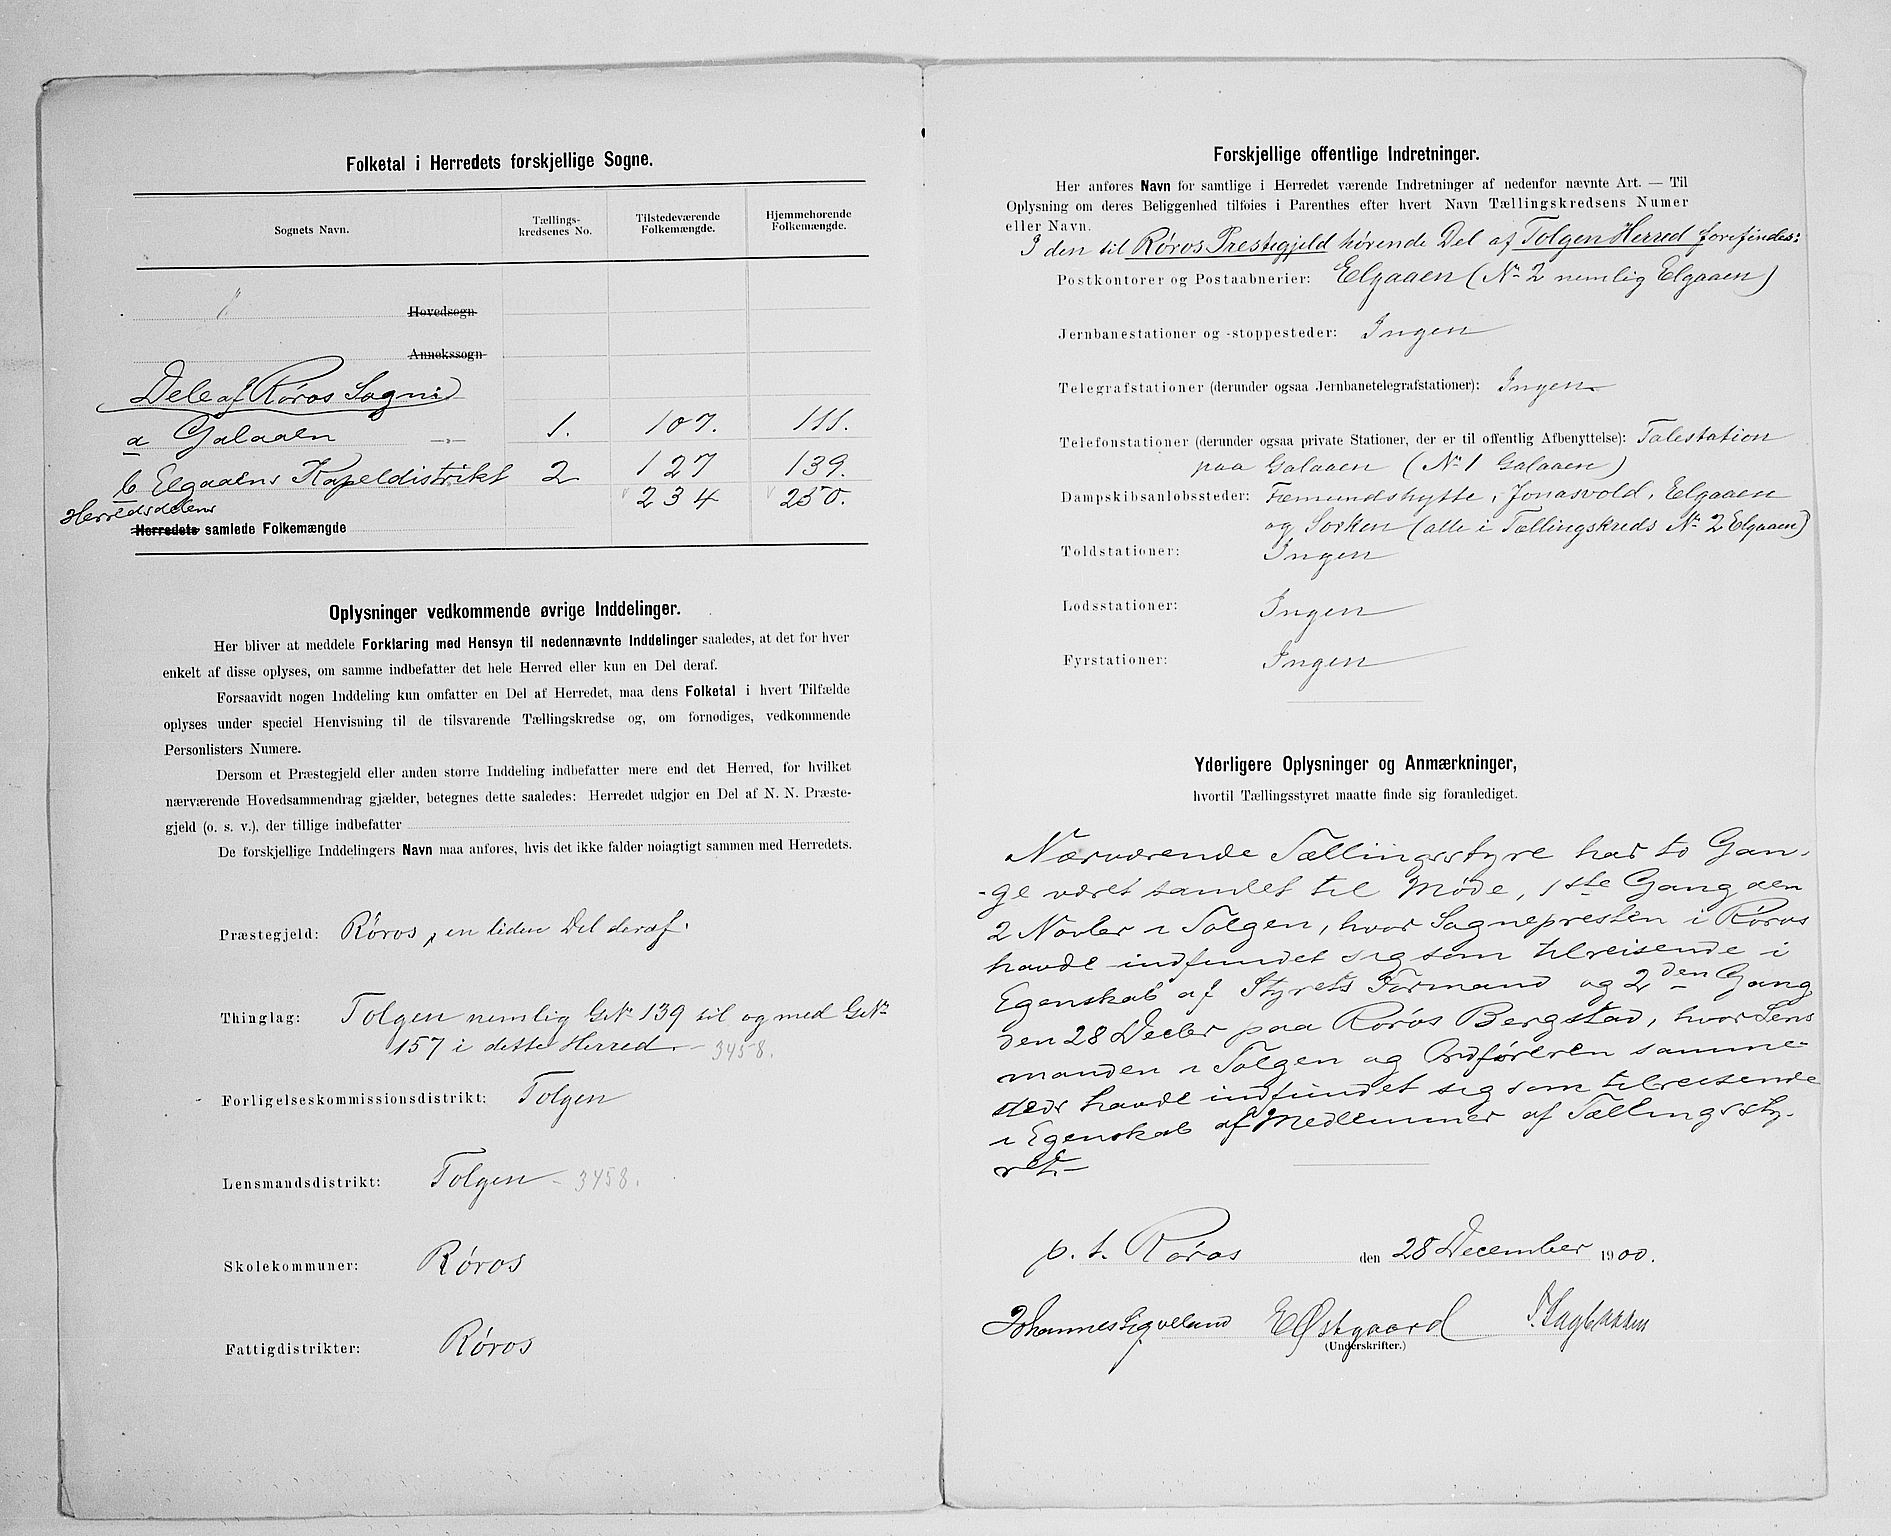 Folketal i Herredets forskjellige Sogne.
Sognets Navn.
Tællings-
kredsenes No.
Tilstedeværende
Folkemængde.
Hjemmehørende
Folkemængde.
Hovedsogn
Annekssogn
Dele af Røros Sogn:
a Galaaen 1. 107. 111.
b Elgaaens Kapeldistrikt 2 127 139.
Herredsdelens 234 250.
Herredets samlede Folkemængde
Oplysninger vedkommende øvrige Inddelinger.
Her bliver at meddele Forklaring med Hensyn til nedennævnte Inddelinger saaledes, at det for hver
enkelt af disse oplyses, om samme indbefatter det hele Herred eller kun en Del deraf.
Forsaavidt nogen Inddeling kun omfatter en Del af Herredet, maa dens Folketal i hvert Tilfælde
oplyses under speciel Henvisning til de tilsvarende Tællingskredse og, om fornødiges, vedkommende
Personlisters Numere.
Dersom et Præstegjeld eller anden større Inddeling indbefatter mere end det Herred, for hvilket
nærværende Hovedsammendrag gjælder, betegnes dette saaledes: Herredet udgjør en Del af N. N. Præste-
gjeld (o. s. v.), der tillige indbefatter
De forskjellige Inddelingers Navn maa anføres, hvis det ikke falder nøiagtigt sammen med Herredets.
Præstegjeld: Røros, en liden Del deraf.
Thinglag: Tolgen nemlig GNr 139 til og med GNr
157 i dette Herred. - 3458.
Forligelseskommissionsdistrikt: Tolgen
Lensmandsdistrikt: Tolgen - 3458.
Skolekommuner: Røros
Fattigdistrikter: Røros
Forskjellige offentlige Indretninger.
Her anføres Navn for samtlige i Herredet værende Indretninger af nedenfor nævnte Art. — Til
Oplysning om deres Beliggenhed tilføies i Parenthes efter hvert Navn Tællingskredsens Numer
eller Navn.
I den til Røros Prestegjeld hørende Del af Tolgen Herred forefindes:
Postkontorer og Postaabnerier: Elgaaen (Nr 2 nemlig Elgaaen)
Jernbanestationer og -stoppesteder: Ingen
Telegrafstationer (derunder ogsaa Jernbanetelegrafstationer): Ingen
Telefonstationer (derunder ogsaa private Stationer, der er til offentlig Afbenyttelse): Talestation
paa Galaaen (Nr 1 Galaaen)
Dampskibsanløbssteder: Fæmundshytte, Jonasvold, Elgaaen
og Sorken (alle i Tællingskreds Nr 2 Elgaaen)
Toldstationer: Ingen
Lodsstationer: Ingen
Fyrstationer: Ingen
Yderligere Oplysninger og Anmærkninger,
hvortil Tællingsstyret maatte finde sig foranlediget.
Nærværende Tællingsstyre har to Gan-
-ge været samlet til Møde, 1ste Gang den
2 Novbr i Tolgen, hvor Sognepresten i Røros
havde indfundet sig som tilreisende i
Egenskab af Styrets Formand og 2den Gang
den 28 Decbr paa Røros Bergstad, hvor Lens
manden i Tolgen og Ordføreren samme-
steds havde indfundet sig som tilreisende
i Egenskab af Medlemmer af Tællingssty-
ret.-
p. t. Røros den 28 December 1900.
Johannes Sigveland E Østgaard
(Underskrifter.)